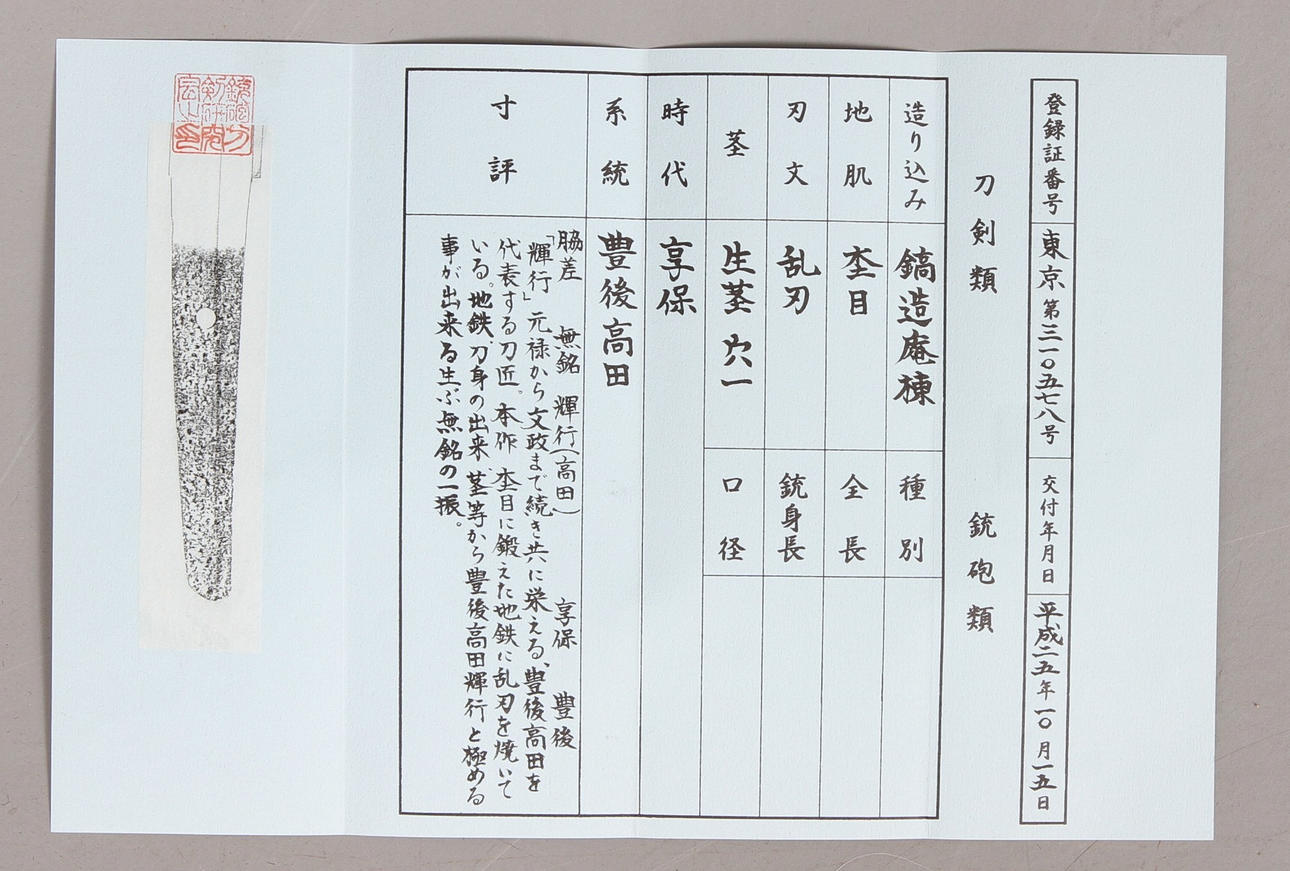 登録証番号 東京 第三一〇五七八号 交付年月日 平成二五年一〇月一五日
刀剣類 銃砲類
造り込み 鎬造庵棟 種別
地肌 杢目 全長
刃文 乱刃 銃身長
茎 生茎 穴一 口径
時代 享保
系統 豊後高田
寸評
脇差 無銘 輝行(高田) 享保 豊後
「輝行」元禄から文政まで続き共に栄える、豊後高田を
代表する刀匠。本作 杢目に鍛えた地鉄に乱刃を焼いて
いる。地鉄、刀身の出来、茎等から豊後高田輝行と極める
事が出来る生ぶ無銘の一振。